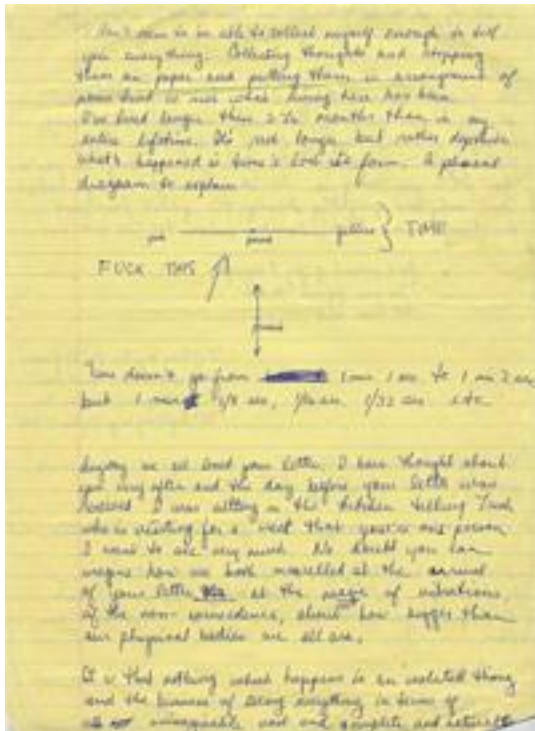 able to collect myself enough to tell
you everything. Collecting thoughts and
them on paper and putting them in arrangement of
some kind is not what being here has been.
I've lived longer these 2 1/2 months than in my
entire lifetime. It's not longer but rather
what's happened is time's lost its form. A
diagram to explain
past present future } TIME
FUCK THIS
present
Time doesn't go from 1 min 1 sec. to 1 min 2 sec
but 1 min 1/8 sec, 1/16 sec. 1/32 sec etc.
we all loved your letter. I have thought about
you very often and the day before your letter was
received I was sitting in the kitchen telling
who is visiting for a week that you're one person
I want to see very much. No doubt you can
imagine how we both marvelled at the arrival
of your letter at the of vibrations,
of the non coincidence, about how bigger than
our physical bodies we all are.
It is that nothing which happens is an isolated thing
and the business of seeing anything in terms of
and complete and